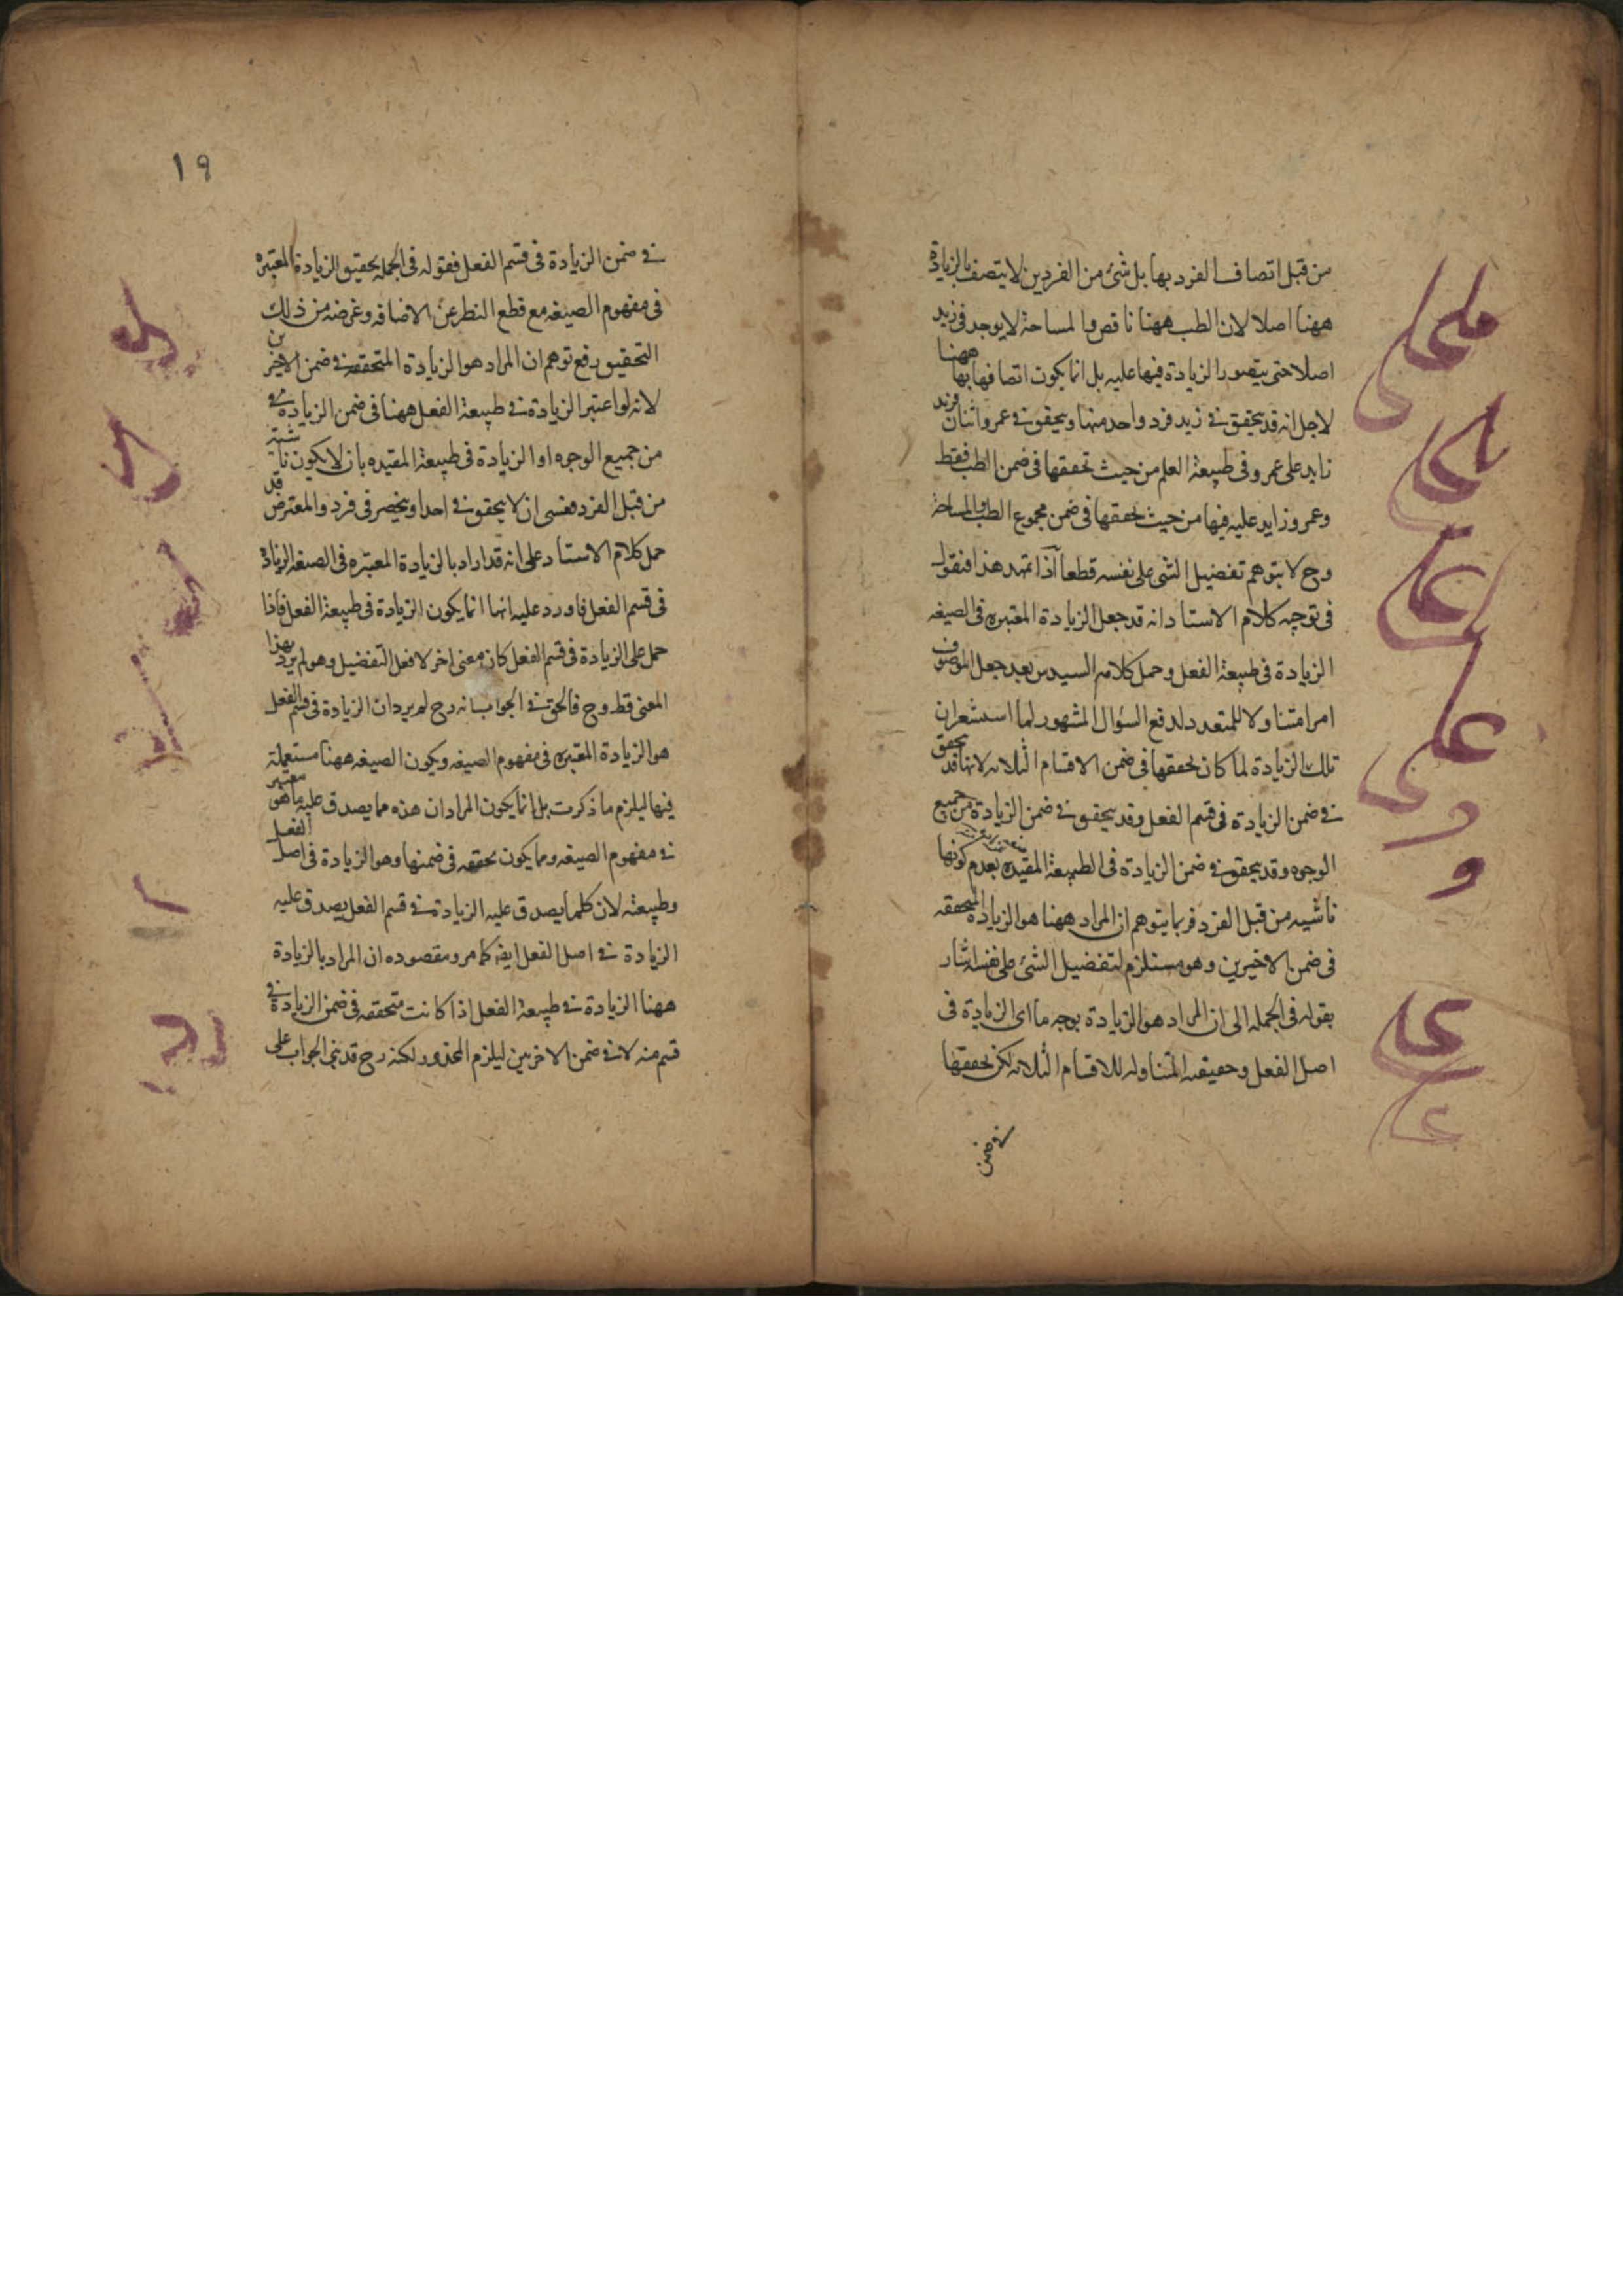 من قبل اتصاف الفرد بها بل شئ من الفردين لا يتصف بالزيادة
ههنا اصلا لان الطب ههنا ناقص والمساحة لا يوجد في زيد
اصلا حتى يتصور الزيادة فيها عليه بل انما يكون اتصافها بها ههنا
لاجل انه قد يتحقق في زيد فرد واحد منها ويتحقق في عمرو اثنان فزيد
زايد على عمرو في طبيعة العلم من حيث تحققها في ضمن الطب فقط
وعمرو زايد عليه فيها من حيث تحققها في ضمن مجموع الطب والمساحة
وح لا يتوهم تفضيل الشئ على نفسه قطعا اذا تمهد هذا فنقول
في توجيه كلام الاستاد انه قد جعل الزيادة المعتبره في الصيغه
الزيادة في طبيعة الفعل وحمل كلام السيد من بعد جعل الموصوف
امرا متناولا للمتعدد لدفع السؤال المشهور لما استشعر ان
تلك الزيادة لما كان تحققها في ضمن الاقسام الثلاثه لانها قد يتحقق
في ضمن الزيادة في قسم الفعل وقد يتحقق في ضمن الزيادة من جميع
الوجوه وقد يتحقق في ضمن الزيادة في الطبيعة المقيده بعدم كونها
ناشيه من قبل الفرد فربما يتوهم ان المراد ههنا هو الزيادة المتحققه
في ضمن الاخيرين وهو مستلزم لتفضيل الشئ على نفسه اشار
بقوله في الجمله الى ان المراد هو الزيادة بوجه ما اى الزيادة في
اصل الفعل وحقيقته المتناوله للاقسام الثلاثه لكن تحققها
في ضمن
١٩
في ضمن الزيادة في قسم الفعل فقوله في الجمله تحقيق الزيادة المعتبره
في مفهوم الصيغه مع قطع النظر عن الاضافه وغرضه من ذلك
التحقيق رفع توهم ان المراد هو الزيادة المتحققه في ضمن الاخيرين
لانه لو اعتبر الزيادة في طبيعة الفعل ههنا في ضمن الزيادة في
من جميع الوجوه او الزيادة في طبيعة المقيده بان لا يكون ناشئة
من قبل الفرد فعسى ان لا يتحقق في احد او ينحصر في فرد والمعترض قد
حمل كلام الاستاد على انه قد اراد بالزيادة المعتبره في الصيغه الزيادة
في قسم الفعل فاورد عليه انها انما يكون الزيادة في طبيعة الفعل فاذا
حمل على الزيادة في قسم الفعل كان معنى اخر لافعل التفضيل وهو لم يرد بهذا
المعنى قط وح فالحق في الجواب انه رح لم يرد ان الزيادة في قسم الفعل
هو الزيادة المعتبره في مفهوم الصيغه ويكون الصيغه ههنا مستعملة
فيها ليلزم ما ذكرت بل انما يكون المراد ان هذه مما يصدق عليه ما هو معتبر
في مفهوم الصيغه ومما يكون تحققه في ضمنها وهو الزيادة في اصل الفعل
وطبيعته لان كلما يصدق عليه الزيادة في قسم الفعل يصدق عليه
الزيادة في اصل الفعل ايضا كما مر ومقصوده ان المراد بالزيادة
ههنا الزيادة في طبيعة الفعل اذا كانت متحققه في ضمن الزيادة في
قسم منه لا في ضمن الاخرين ليلزم المحذور لكنه رح قد بنى الجواب على